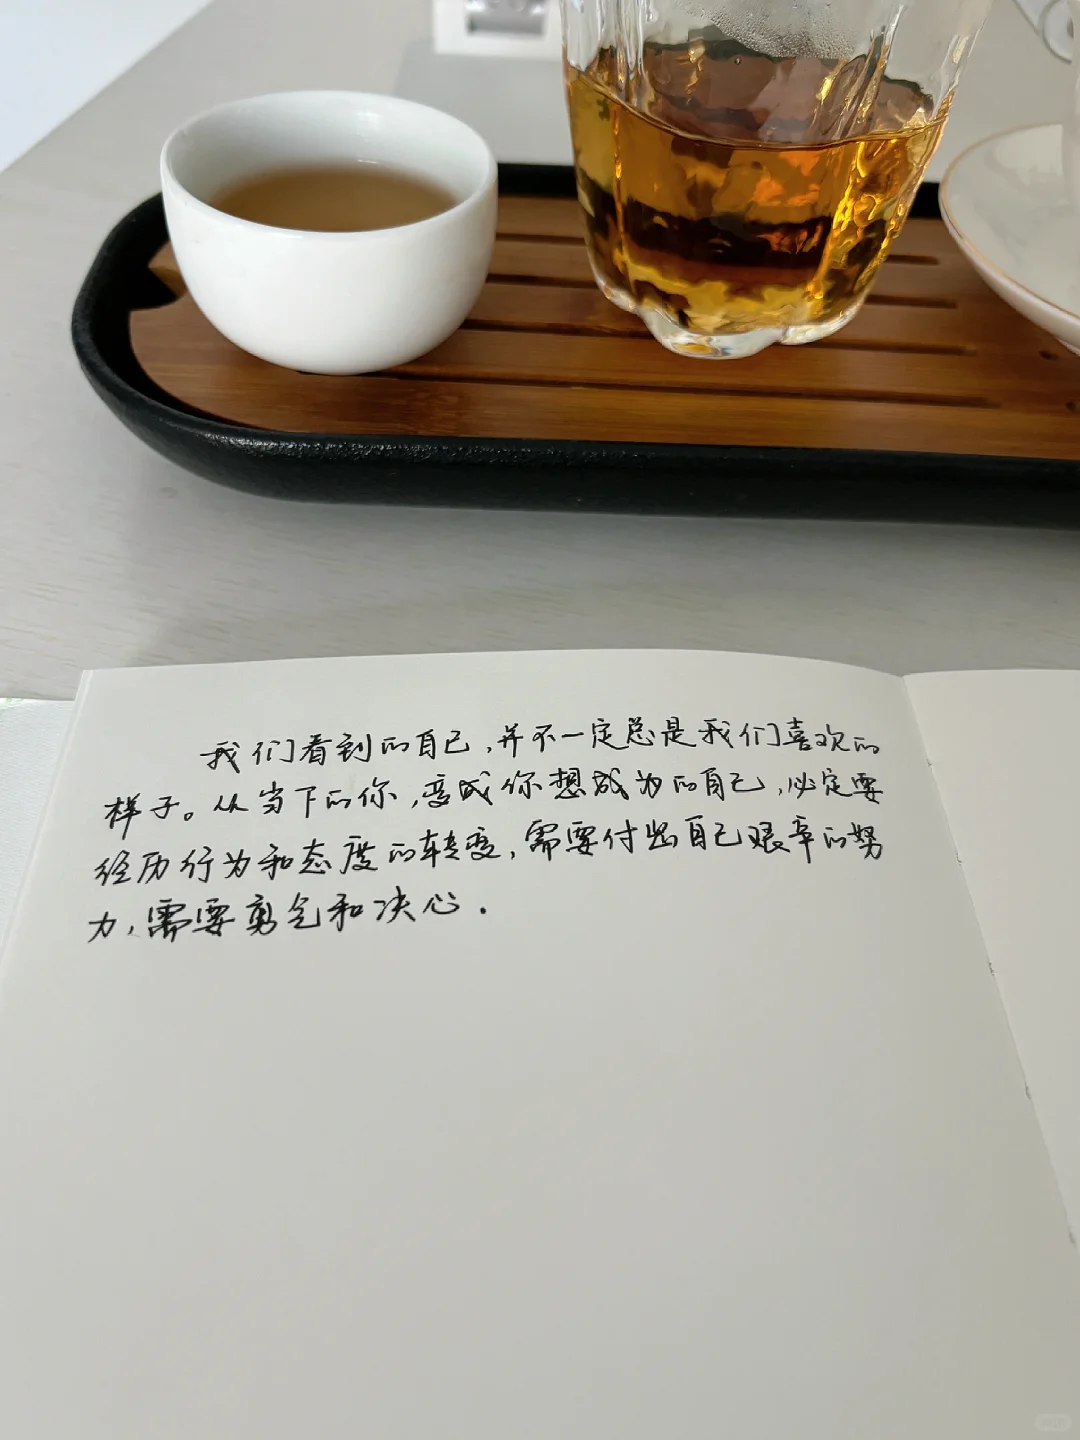 我们看到的自己,并不一定总是我们喜欢的
样子。从当下的你,变成你想成为的自己,必定要
经历行为和态度的转变,需要付出自己艰辛的努
力,需要勇气和决心.